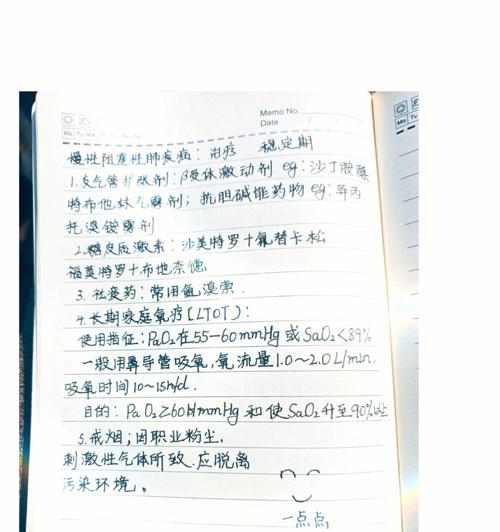 Memo No.
Mo Tu We
Date / /
慢性阻塞性肺疾病：治疗 稳定期
1.支气管扩张剂：β受体激动剂 eg：沙丁胺醇
特布他林气雾剂；抗胆碱能药物eg：异丙
托溴铵雾剂
2.糖皮质激素：沙美特罗+氟替卡松
福莫特罗+布地奈德
3.祛痰药：常用氨溴索.
4.长期家庭氧疗[LTOT]：
使用指征：PaO2在55-60mmHg或SaO2<89%
一般用鼻导管吸氧，氧流量1.0~2.0L/min，
吸氧时间10~15h/d.
目的：PaO2≥60mmHg和使SaO2升至90%以上
5.戒烟；因职业粉尘，
刺激性气体所致，应脱离
污染环境。
一点点